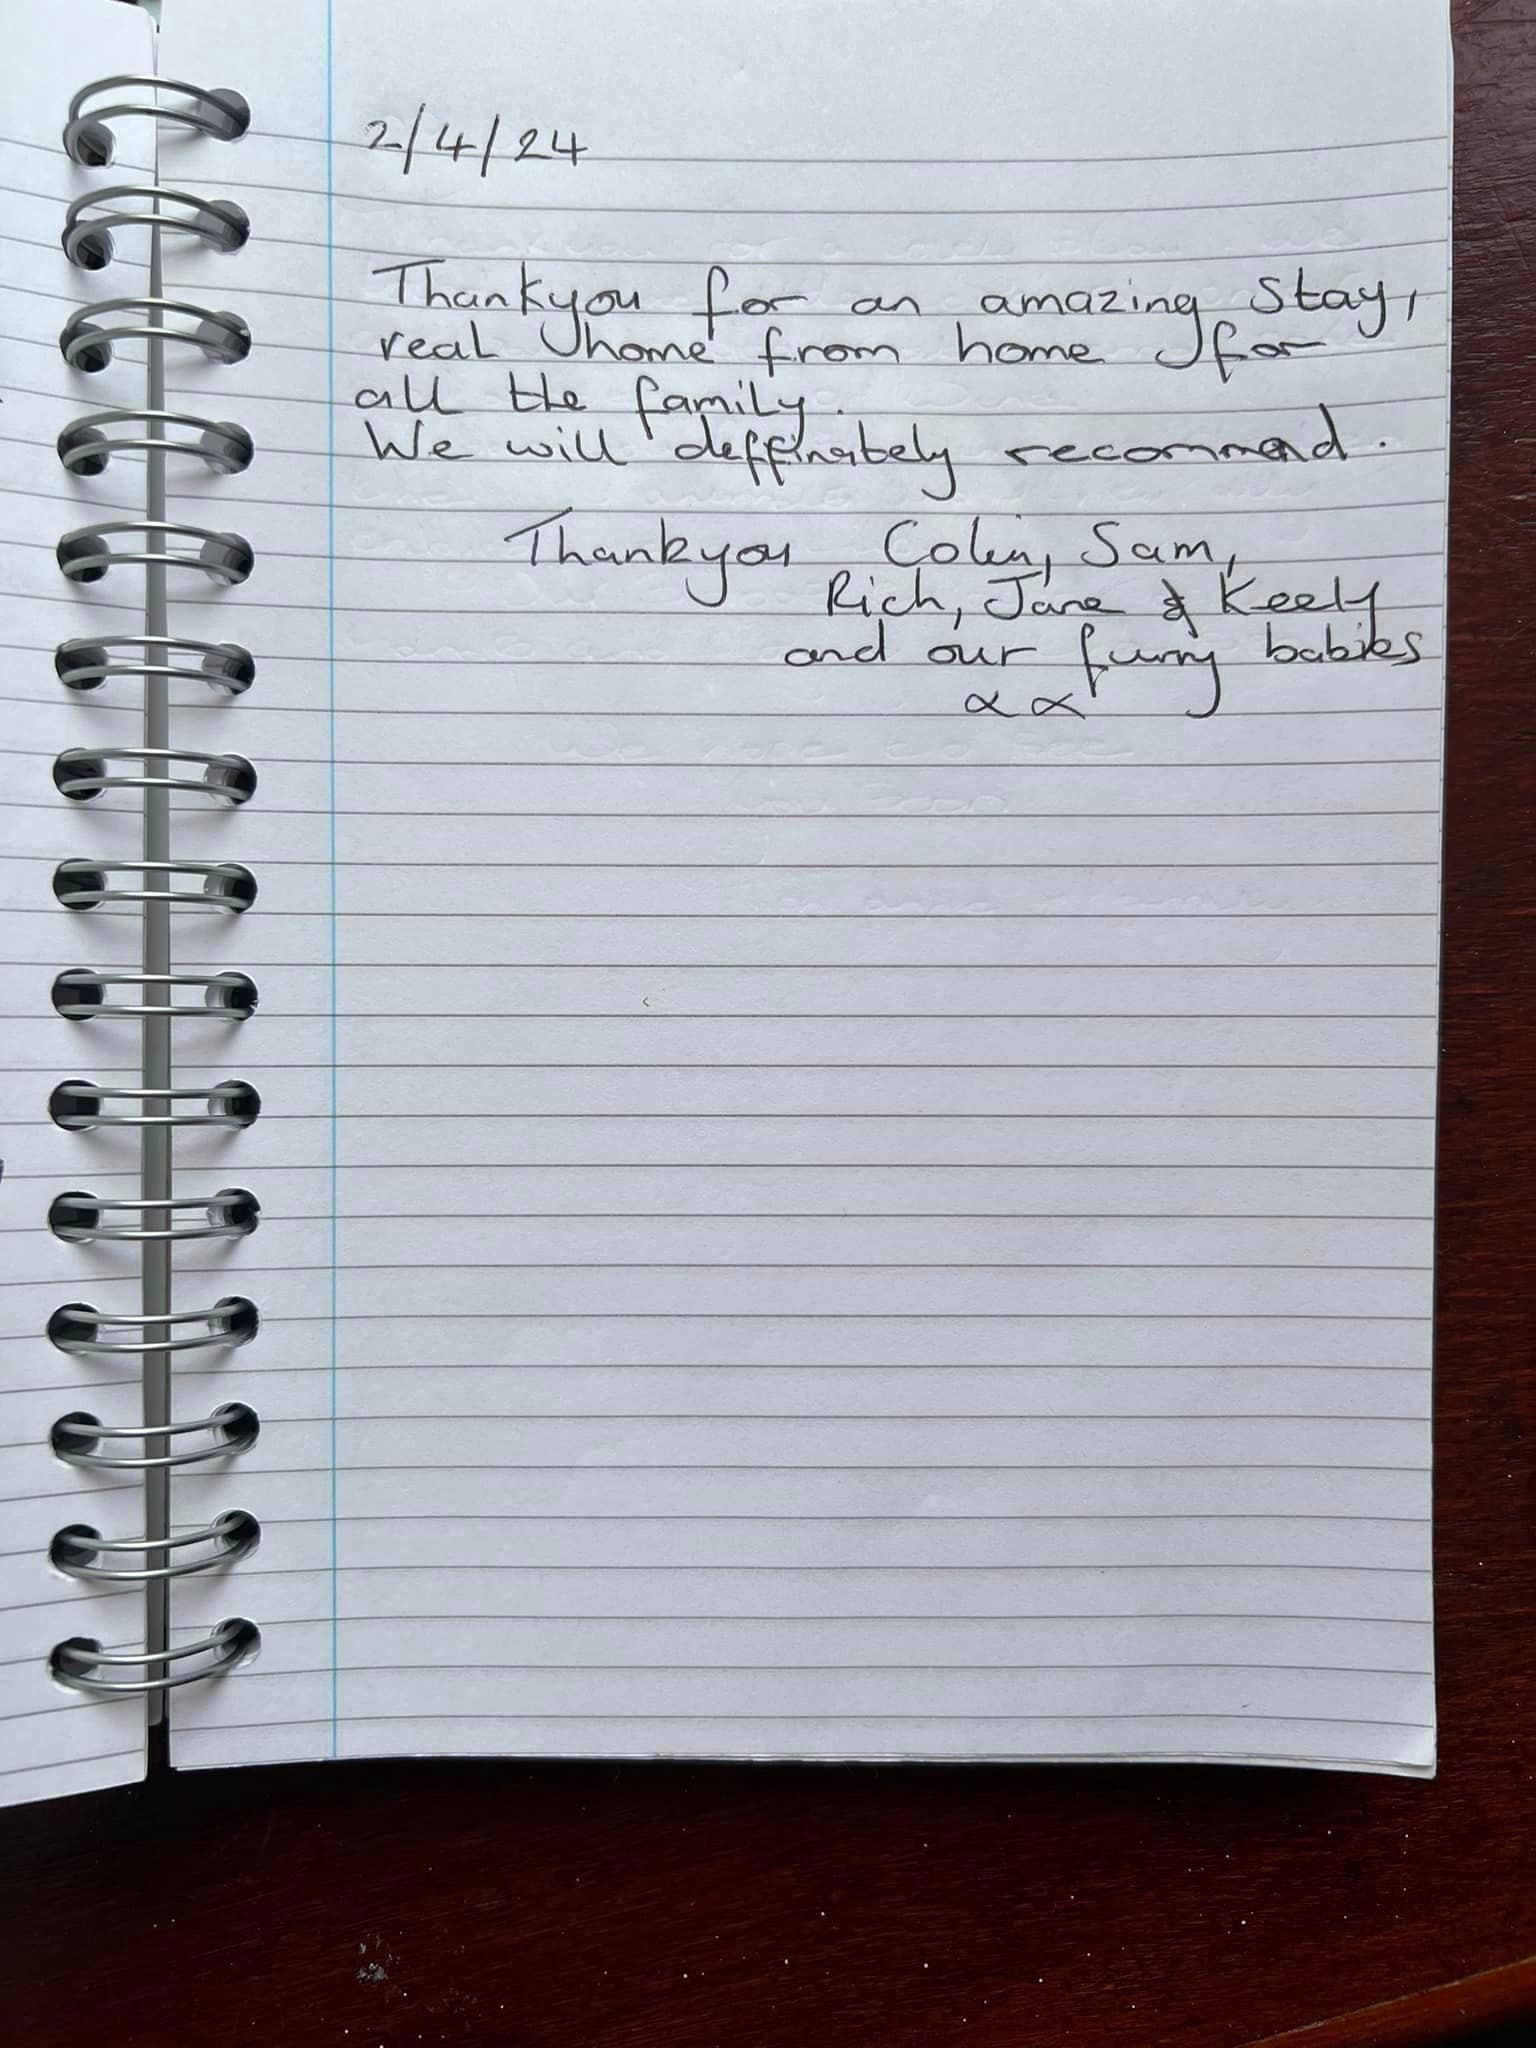 2/4/24
Thankyou for an amazing stay,
real home from home for
all the family.
We will deffinately recommend.
Thankyou Colin, Sam,
Rich, Jane & Keely
and our furry babies
xx